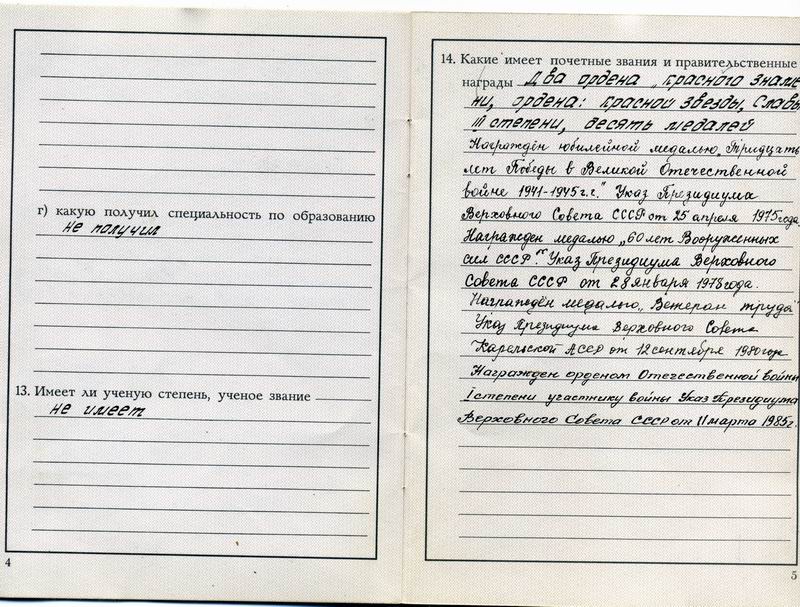 г) какую получил специальность по образованию
не получил
13. Имеет ли ученую степень, ученое звание
не имеет
4
14. Какие имеет почетные звания и правительственные
награды Два ордена „Красного знаме
ни, ордена: Красной Звезды, Славы
III степени, десять медалей
Награждён юбилейной медалью „Тридцать
лет Победы в Великой Отечественной
войне 1941-1945 г.г." Указ Президиума
Верховного Совета СССР от 25 апреля 1975 года.
Награжден медалью „60 лет Вооруженных
сил СССР". Указ Президиума Верховного
Совета СССР от 28 января 1978 года.
Награждён медалью „Ветеран труда"
Указ Президиума Верховного Совета
Карельской АССР от 12 сентября 1980 года
Награжден орденом Отечественной войны
I степени участнику войны Указ Президиума
Верховного Совета СССР от 11 марта 1985 г.
5